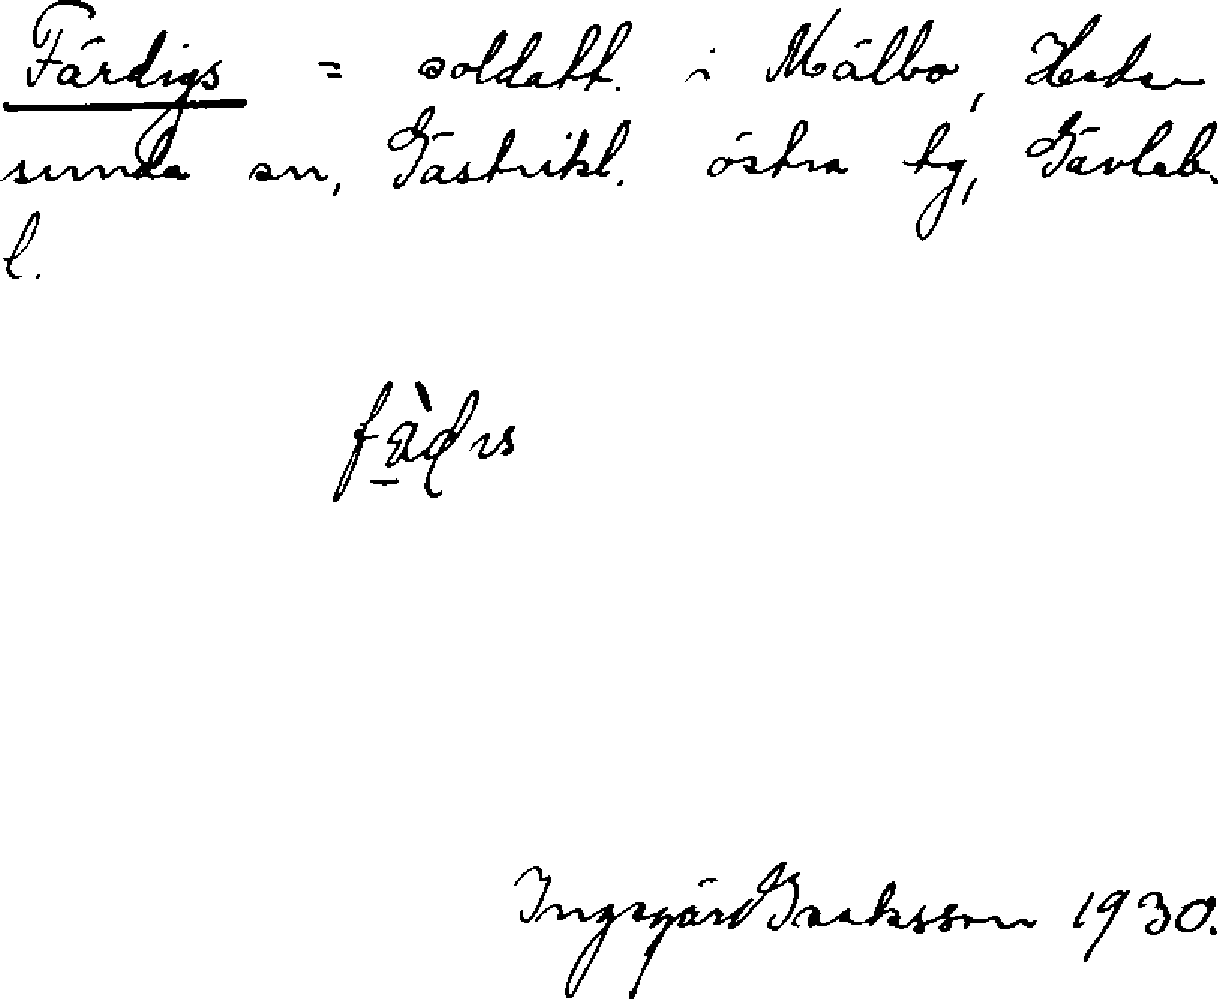 Färdigs = soldatt. i Målbo, Hede-
sunda sn, Gästrikl. östra tg, Gävleb.
l.
Ingegärd Isaksson 1930.